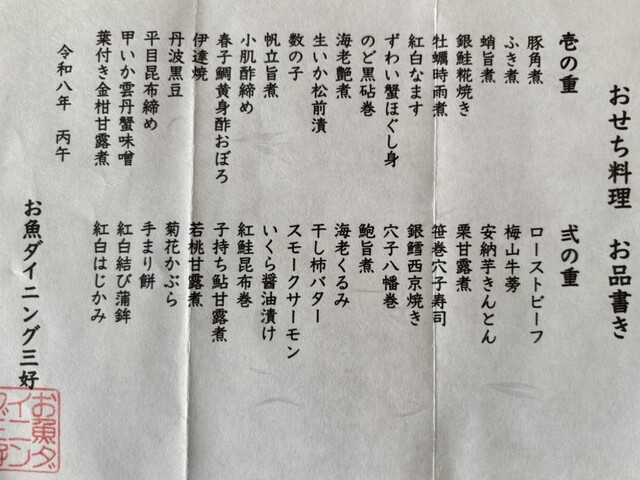 おせち料理　お品書き
壱の重
豚角煮
ふき煮
蛸旨煮
銀鮭糀焼き
牡蠣時雨煮
紅白なます
ずわい蟹ほぐし身
のど黒砧巻
海老艶煮
生いか松前漬
数の子
帆立旨煮
小肌酢締め
春子鯛黄身酢おぼろ
伊達焼
丹波黒豆
平目昆布締め
甲いか雲丹蟹味噌
葉付き金柑甘露煮
弐の重
ローストビーフ
梅山牛蒡
安納芋きんとん
栗甘露煮
笹巻穴子寿司
銀鱈西京焼き
穴子八幡巻
鮑旨煮
海老くるみ
干し柿バター
スモークサーモン
いくら醤油漬け
紅鮭昆布巻
子持ち鮎甘露煮
若桃甘露煮
菊花かぶら
手まり餅
紅白結び蒲鉾
紅白はじかみ
令和八年　丙午
お魚ダイニング三好
お魚ダ
イニン